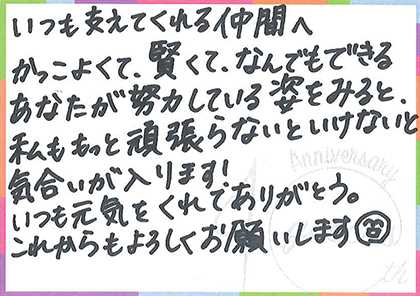 いつも支えてくれる仲間へ
かっこよくて、賢くて、なんでもできる
あなたが努力している姿をみると、
私ももっと頑張らないといけないと
気合いが入ります!
いつも元気をくれてありがとう。
これからもよろしくお願いします
Anniversary
th